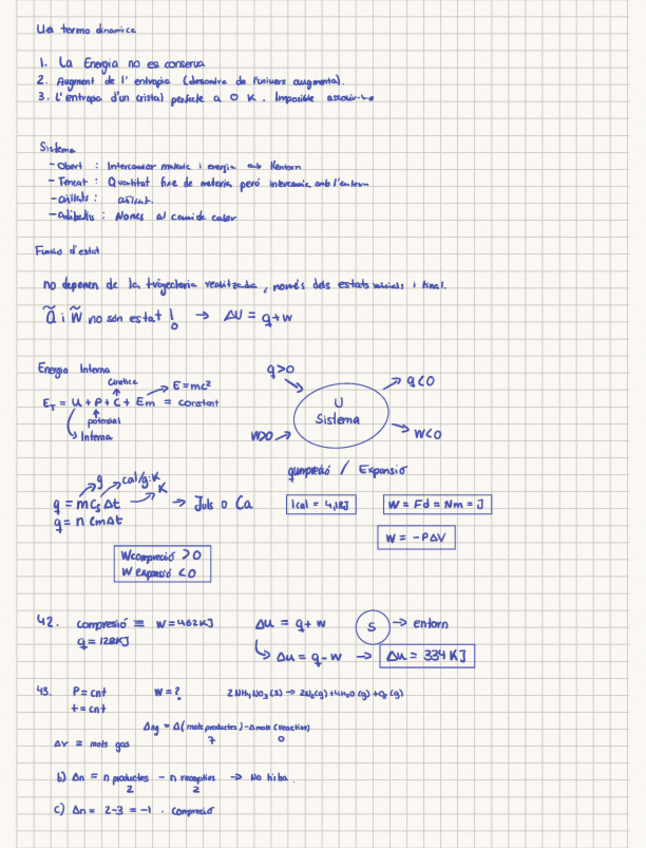 Llei termo dinamica
1. La Energia no es conserva
2. Augment de l'entropia (desordre de l'univers augmenta).
3. L'entropa d'un cristal perfecte a 0 K. Imposible assolir-lo
Sistema
- Obert : Intercanviar materia i energia amb l'entorn
- Tencat : Quantitat fixe de materia però intercanvia amb l'entorn
- aïllats : aïllat.
- adibatic : Nomes al canvi de calor
Funció d'estat
no depenen de la trayectoria realitzada, només dels estats inicials i final.
q̃ i w̃ no són estat ! → ΔU = q+w
Energia Interna
Cinetica
E=mc²
E_T = U + P + C + Em = constant
potencial
Interna
q>0
q<0
U
Sistema
W>0
W<0
compreció / Expansió
g
cal/g·K
K
q = m C_s Δt → Juls o Ca
q = n Cm Δt
1cal = 4,18J
W = Fd = Nm = J
W = -PΔV
Wcompreció > 0
W expansió < 0
42. compresió ≡ W=462KJ
q=128KJ
Δu = q+w
S → entorn
Δu = q-w → Δu = 334 KJ
43. P=cnt W=? 2NH₄NO₃(s) → 2N₂(g)+4H₂O(g)+O₂(g)
t=cnt
Δng = Δ(mols productes) - Δmols (reaction)
7 0
ΔV ≡ mols gas
b) Δn = n productes - n reactius → No hi ha.
2 2
c) Δn = 2-3 = -1 . Compreció